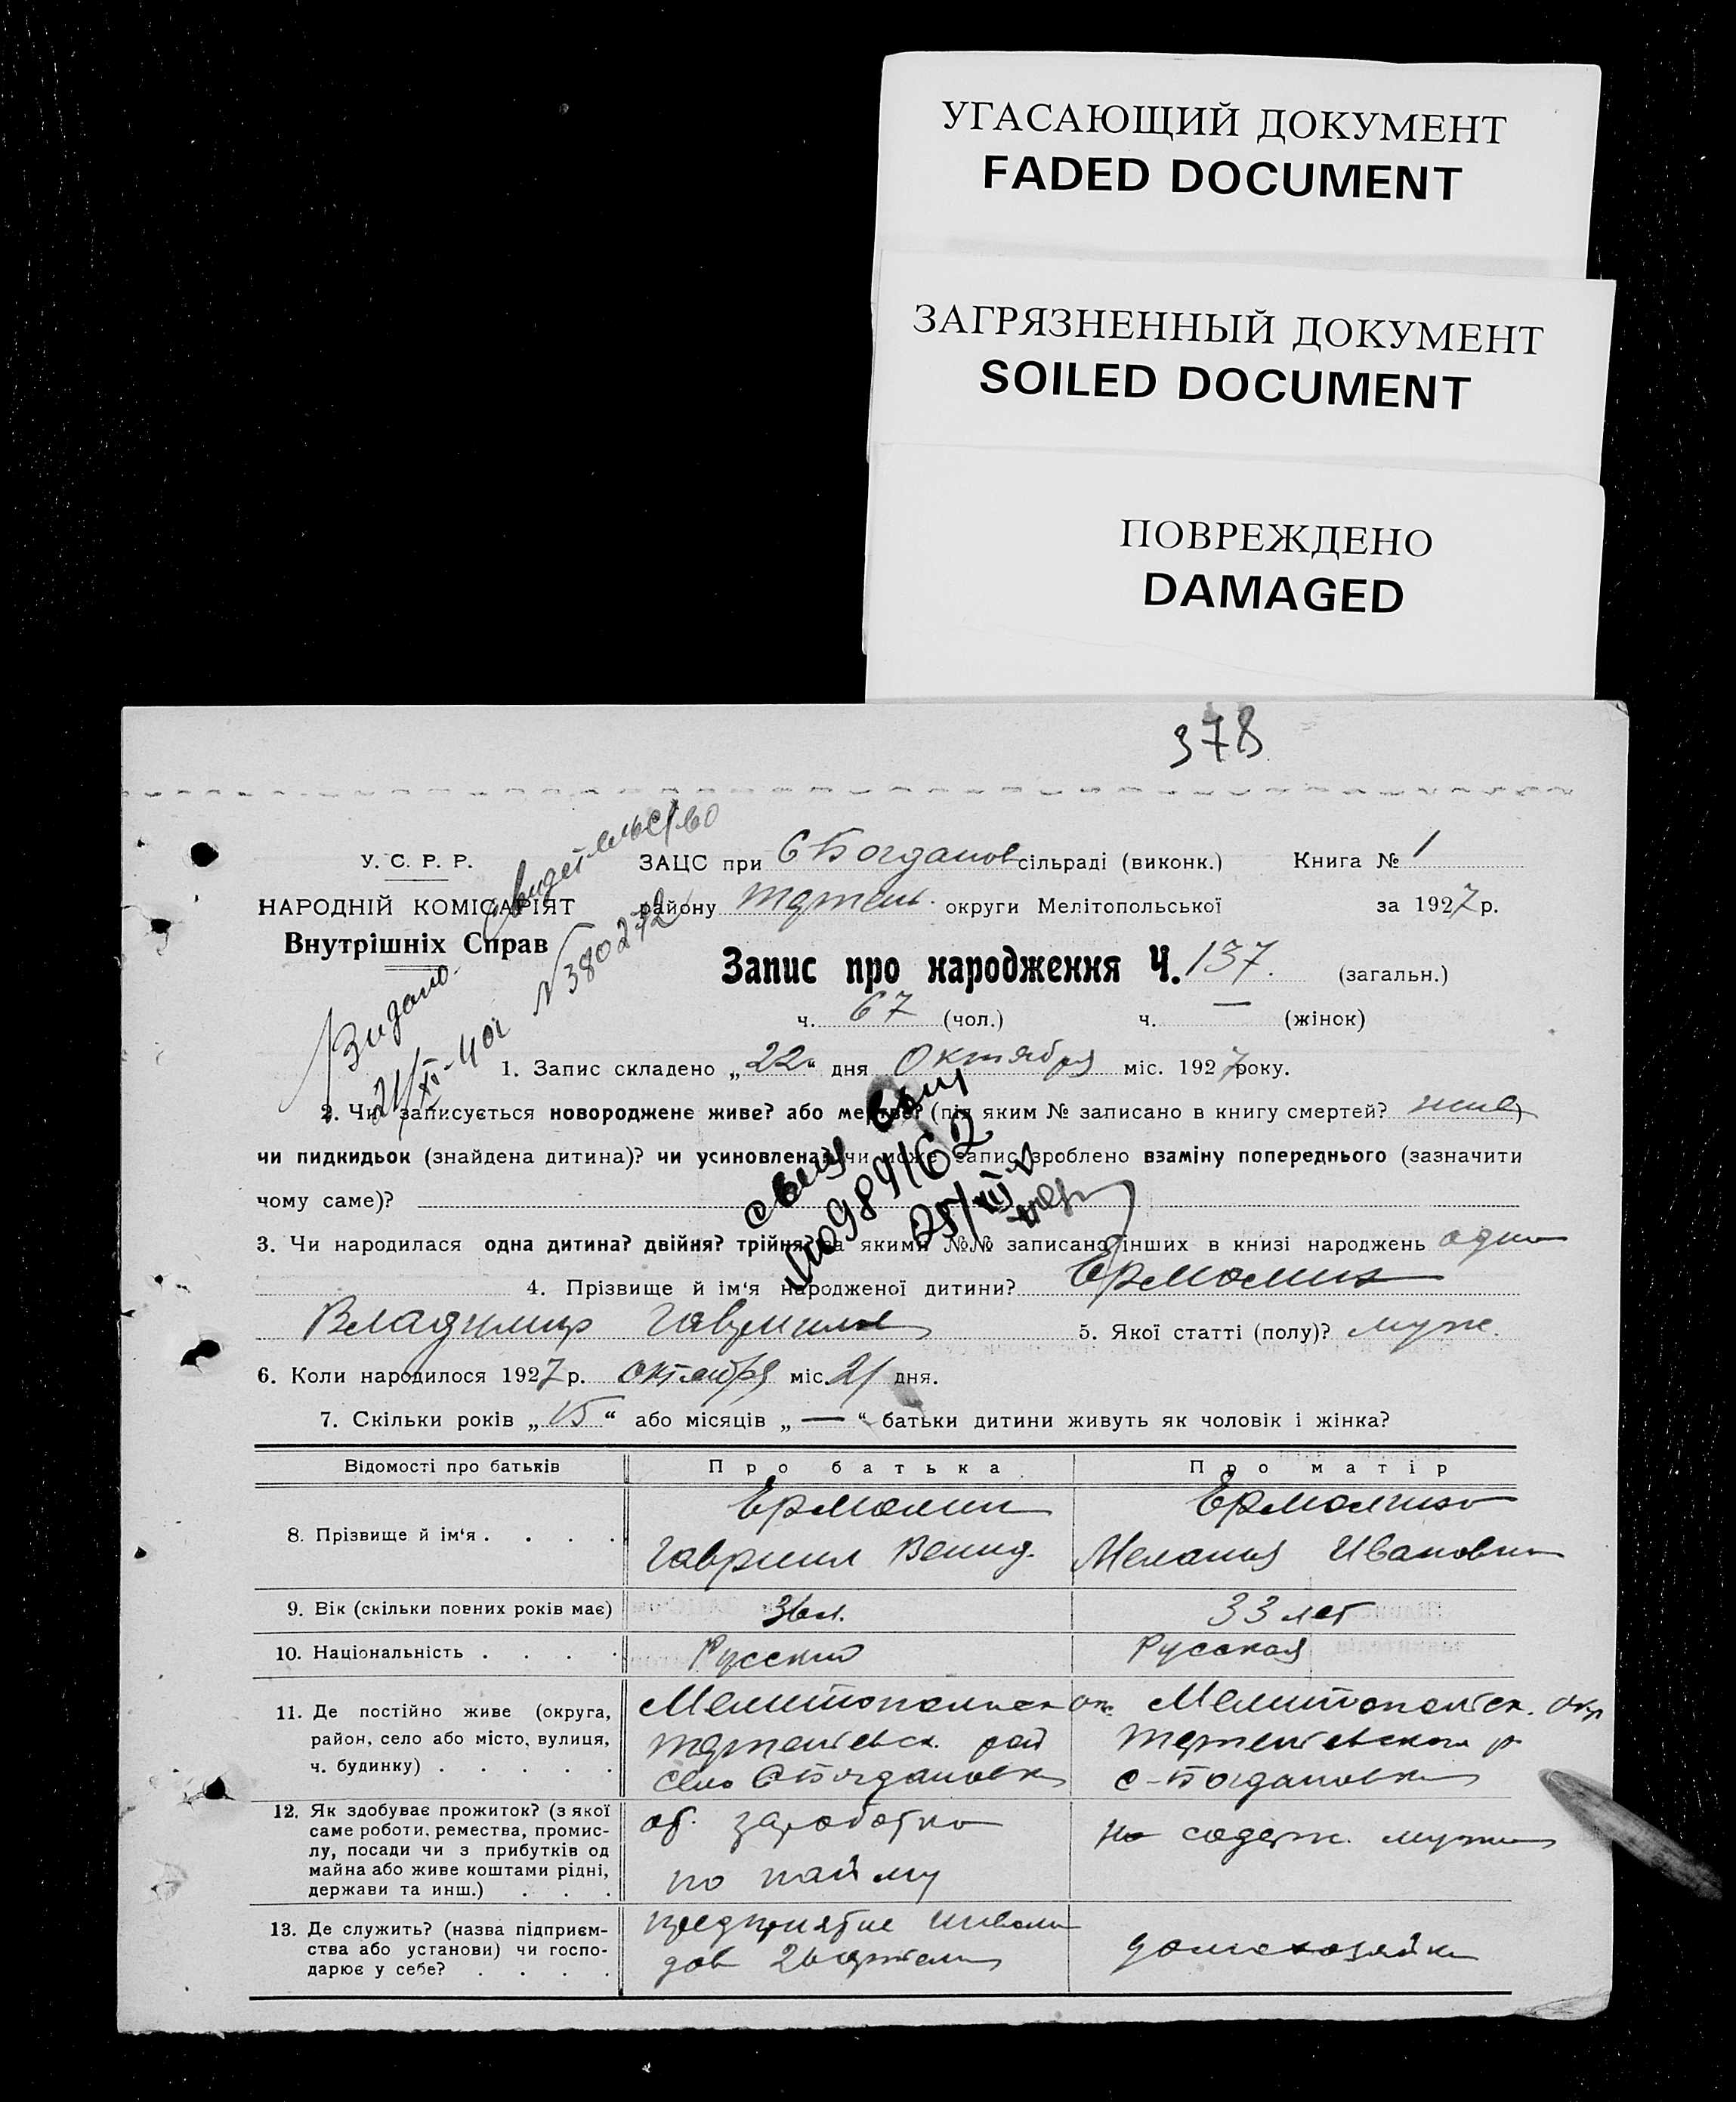 УГАСАЮЩИЙ ДОКУМЕНТ
FADED DOCUMENT
ЗАГРЯЗНЕННЫЙ ДОКУМЕНТ
SOILED DOCUMENT
ПОВРЕЖДЕНО
DAMAGED
378
У. С. Р. Р.
НАРОДНІЙ КОМІСАРІЯТ
Внутрішніх Справ
Видано свидетельство
21/XI-40г N380272
ЗАЦС при С Богданов сільраді (виконк.) Книга № 1
району округи Мелітопольської за 1927 р.
Запис про народження Ч. 137. (загальн.)
ч. 67 (чол.) ч. — (жінок)
1. Запис складено „22“ дня Октября міс. 1927 року.
2. Чи записується новороджене живе? або мертве? (під яким № записано в книгу смертей?
чи пидкидьок (знайдена дитина)? чи усиновлена? чи може запис зроблено взаміну попереднього (зазначити
чому саме)?
3. Чи народилася одна дитина? двійня? трійня? за якими №№ записано інших в книзі народжень одна
4. Прізвище й ім‘я народженої дитини? Ермолин
Владимир 5. Якої статті (полу)? муж.
6. Коли народилося 1927 р. октября міс. 21 дня.
7. Скільки років „15“ або місяців „—“ батьки дитини живуть як чоловік і жінка?
Відомості про батьків Про батька Про матір
8. Прізвище й ім‘я . . . . Ермолин Ермолина
Гавриил Мелания Ивановна
9. Вік (скільки повних років має) 36 л. 33 лет
10. Національність . . . . Русский Русская
11. Де постійно живе (округа, район, село або місто, вулиця, ч. будинку) . . . . .
Мелитопольск ок. Мелитопольск. окр
рай
село С Богдановка с-Богдановка
12. Як здобуває прожиток? (з якої саме роботи, ремества, промислу, посади чи з прибутків од майна або живе коштами рідні, держави та инш.) . . .
от. заработка на содерж. мужа
по найму
13. Де служить? (назва підприємства або установи) чи господарює у себе? . . . .
предприятие инвали
дов домохозяйка